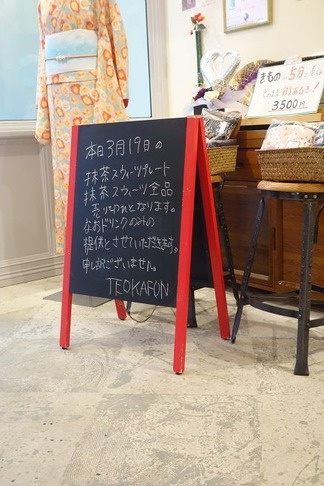 本日3月19日の
抹茶スウィーツプレート
抹茶スウィーツ全品
売り切れとなります。
なおドリンクのみの
提供とさせていただきます。
申し訳ございません。
TEOKAFON
きもの
5分
3500円